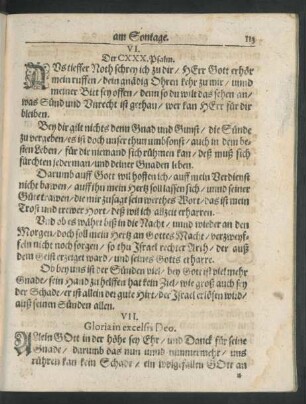 am Sontage. 213
VI.
Der CXXX. Psalm.
AUs tieffer Noth schrey ich zu dir / HErr Gott erhör
mein ruffen / dein gnädig Ohren kehr zu mir / unnd
meiner Bitt sey offen / denn so du wilt das sehen an /
was Sünd und Unrecht ist gethan / wer kan HErr für dir
bleiben.
Bey dir gilt nichts denn Gnad und Gunst / die Sünde
zu vergeben / es ist doch unser thun umbsonst / auch in dem be-
sten Leben / für dir niemand sich rühmen kan / deß muß sich
fürchten jederman / und deiner Gnaden leben.
Darumb auff Gott wil hoffen ich / auff mein Verdienst
nicht bawen / auff ihn mein Hertz soll lassen sich / unnd seiner
Güte trawen / die mir zusagt sein werthes Wort / das ist mein
Trost und trewer Hort / deß wil ich allzeit erharren.
Und ob es währt biß in die Nacht / unnd wieder an den
Morgen / doch soll mein Hertz an Gottes Macht / verzweif-
feln nicht noch sorgen / so thu Israel rechter Arth / der auß
dem Geist erzeiget ward / und seines Gotts erharre.
Ob bey uns ist der Sünden viel / bey Gott ist viel mehr
Gnade / sein Hand zu helffen hat kein Ziel / wie groß auch sey
der Schade / er ist allein der gute Hirt / der Israel erlösen wird /
auß seinen Sünden allen.
VII.
Gloria in excelsis Deo.
ALlein GOtt in der höhe sey Ehr / und Danck für seine
Gnade / darumb das nun unnd nimmermehr / uns
rühren kan kein Schade / ein wolgefallen GOtt an